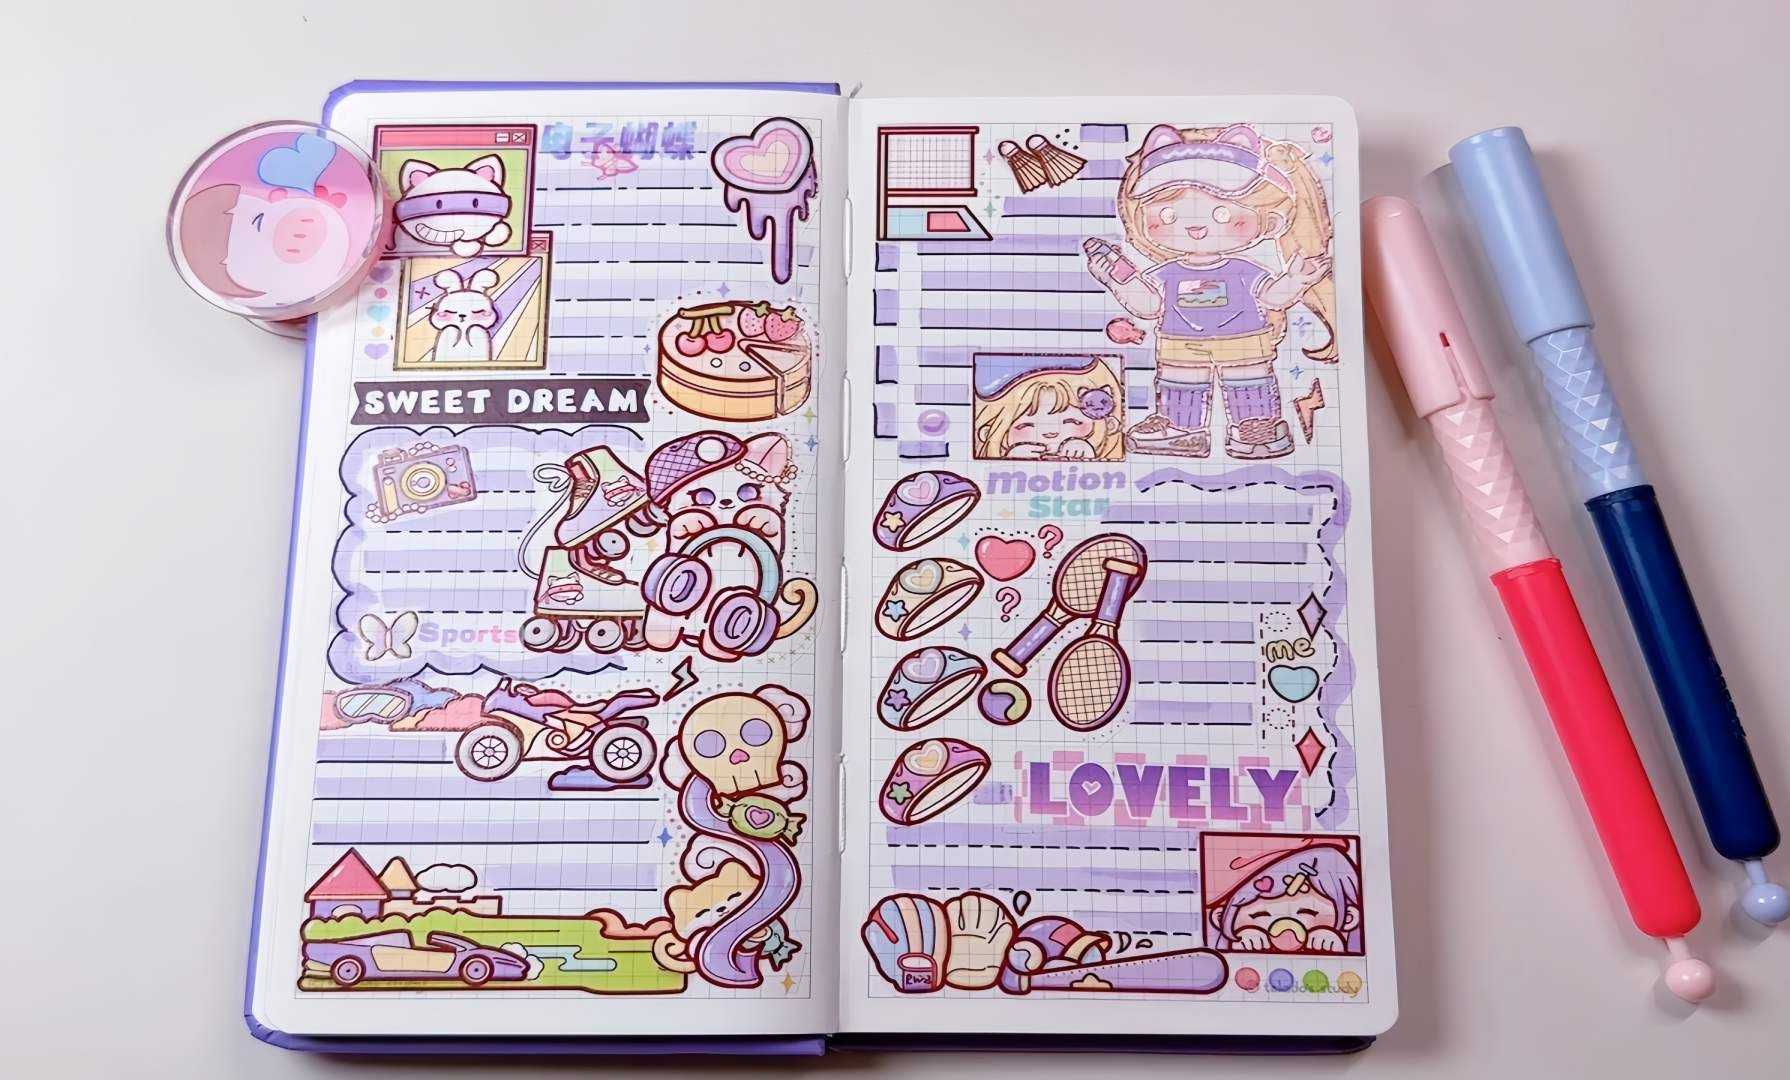 电子蝴蝶
SWEET DREAM
Sports
motion
Star
me
LOVELY